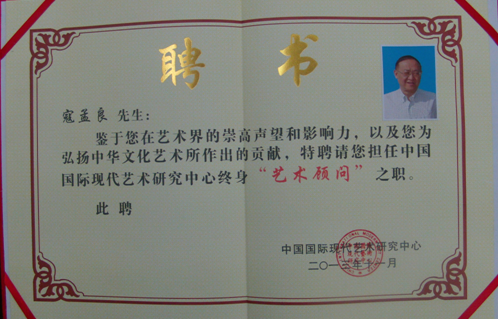 聘书
寇孟良 先生：
鉴于您在艺术界的崇高声望和影响力，以及您为
弘扬中华文化艺术所作出的贡献，特聘请您担任中国
国际现代艺术研究中心终身“艺术顾问”之职。
此聘
中国国际现代艺术研究中心
二〇一三年十一月